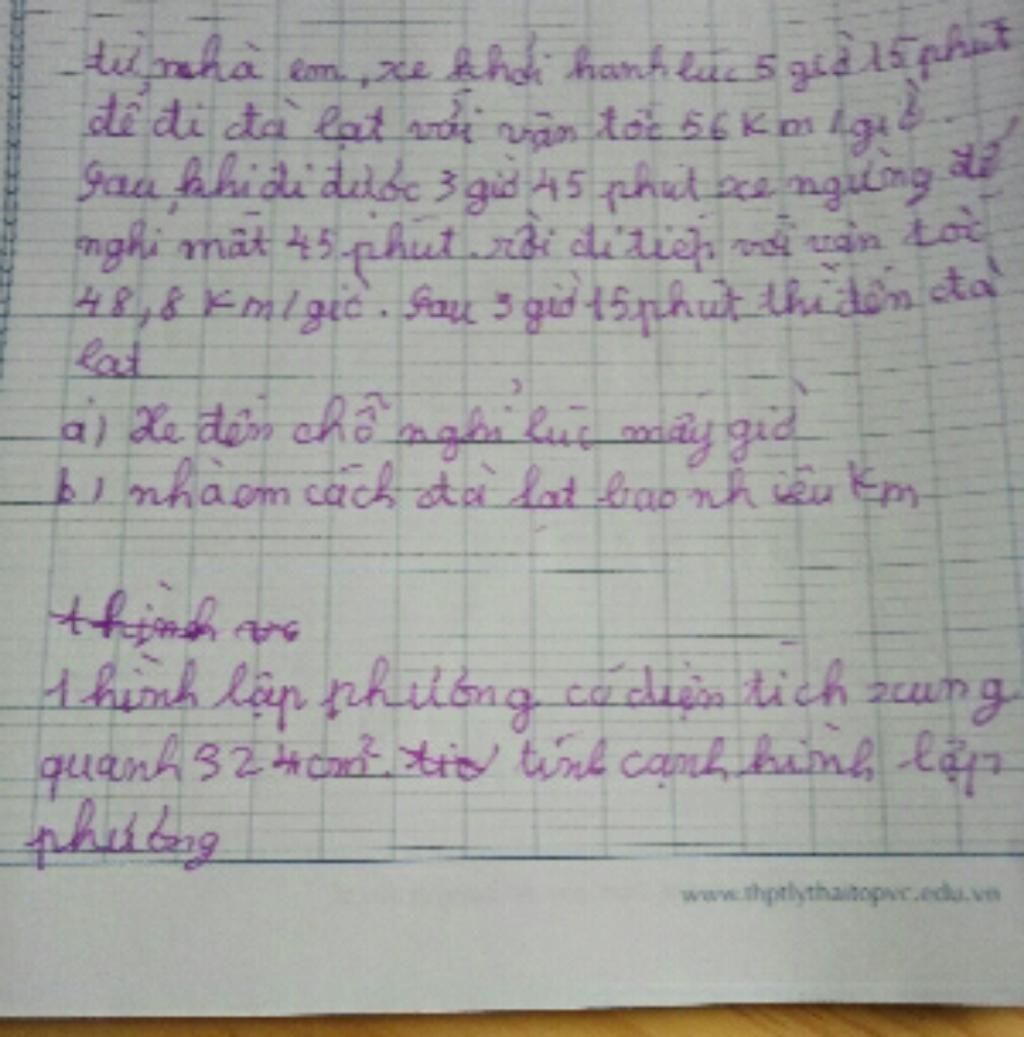 từ nhà em, xe khởi hanh lúc 5 giờ 15 phút
để đi đà lạt với vận tốc 56 Km/giờ.
Sau khi đi được 3 giờ 45 phút xe ngừng để
nghỉ mất 45 phút rồi đi tiếp với vận tốc
48,8 Km/giờ. Sau 3 giờ 15 phút thì đến đà
lạt
a) Xe đến chỗ nghỉ lúc mấy giờ
b) nhà em cách đà lạt bao nhiêu Km
1 hình
1 hình lập phương có diện tích xung
quanh 324cm². tính cạnh hình lập
phương
www.thptlythaitopvc.edu.vn